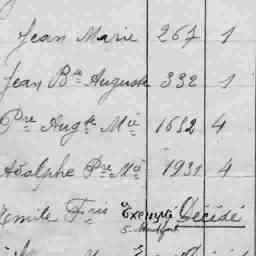 Jean Marie 267 1
Jean Bte Auguste 332 1
Pre Augte Mie 1652 4
Adolphe Pre Ma 1931 4
Emile Fois Exempté Décédé